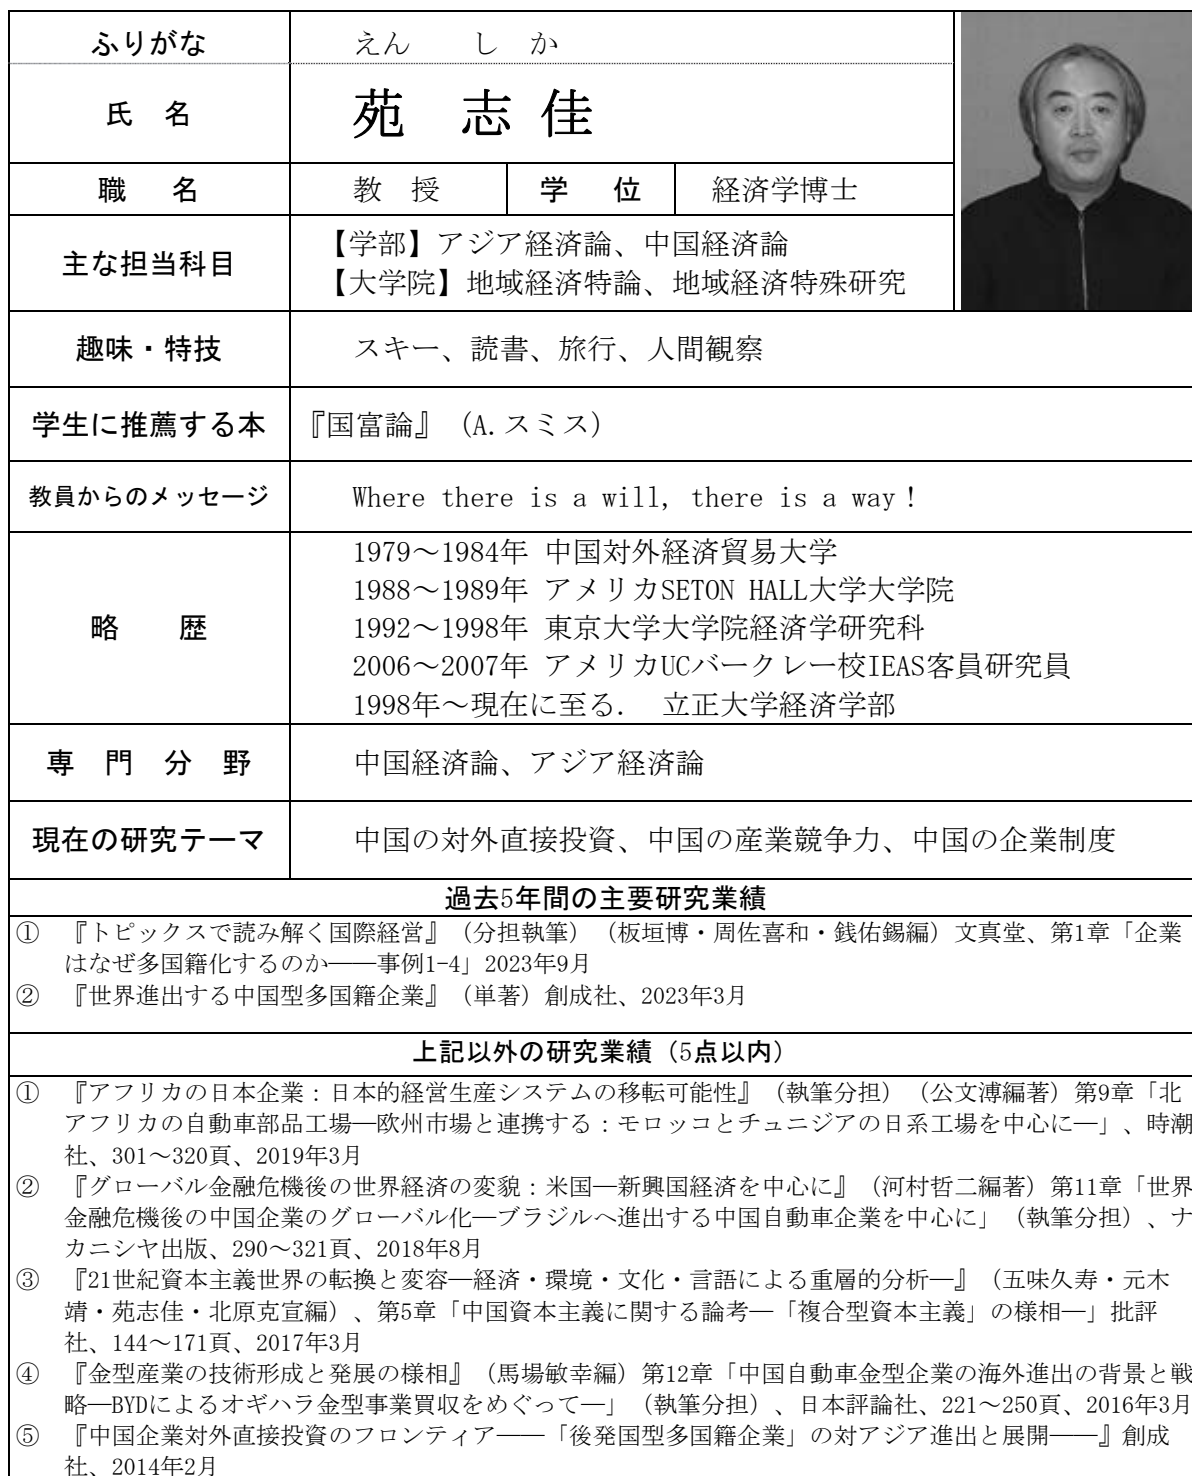 ふりがな えん し か
氏 名 苑 志 佳
職 名 教 授 学 位 経済学博士
主な担当科目 【学部】アジア経済論、中国経済論
【大学院】地域経済特論、地域経済特殊研究
趣味・特技 スキー、読書、旅行、人間観察
学生に推薦する本 『国富論』（A.スミス）
教員からのメッセージ Where there is a will, there is a way！
略 歴 1979～1984年 中国対外経済貿易大学
1988～1989年 アメリカSETON HALL大学大学院
1992～1998年 東京大学大学院経済学研究科
2006～2007年 アメリカUCバークレー校IEAS客員研究員
1998年～現在に至る. 立正大学経済学部
専 門 分 野 中国経済論、アジア経済論
現在の研究テーマ 中国の対外直接投資、中国の産業競争力、中国の企業制度
過去5年間の主要研究業績
① 『トピックスで読み解く国際経営』（分担執筆）（板垣博・周佐喜和・銭佑錫編）文真堂、第1章「企業
はなぜ多国籍化するのか――事例1-4」2023年9月
② 『世界進出する中国型多国籍企業』（単著）創成社、2023年3月
上記以外の研究業績（5点以内）
① 『アフリカの日本企業：日本的経営生産システムの移転可能性』（執筆分担）（公文溥編著）第9章「北
アフリカの自動車部品工場―欧州市場と連携する：モロッコとチュニジアの日系工場を中心に―」、時潮
社、301～320頁、2019年3月
② 『グローバル金融危機後の世界経済の変貌：米国―新興国経済を中心に』（河村哲二編著）第11章「世界
金融危機後の中国企業のグローバル化―ブラジルへ進出する中国自動車企業を中心に」（執筆分担）、ナ
カニシヤ出版、290～321頁、2018年8月
③ 『21世紀資本主義世界の転換と変容―経済・環境・文化・言語による重層的分析―』（五味久寿・元木
靖・苑志佳・北原克宣編）、第5章「中国資本主義に関する論考―「複合型資本主義」の様相―」批評
社、144～171頁、2017年3月
④ 『金型産業の技術形成と発展の様相』（馬場敏幸編）第12章「中国自動車金型企業の海外進出の背景と戦
略―BYDによるオギハラ金型事業買収をめぐって―」（執筆分担）、日本評論社、221～250頁、2016年3月
⑤ 『中国企業対外直接投資のフロンティア――「後発国型多国籍企業」の対アジア進出と展開――』創成
社、2014年2月